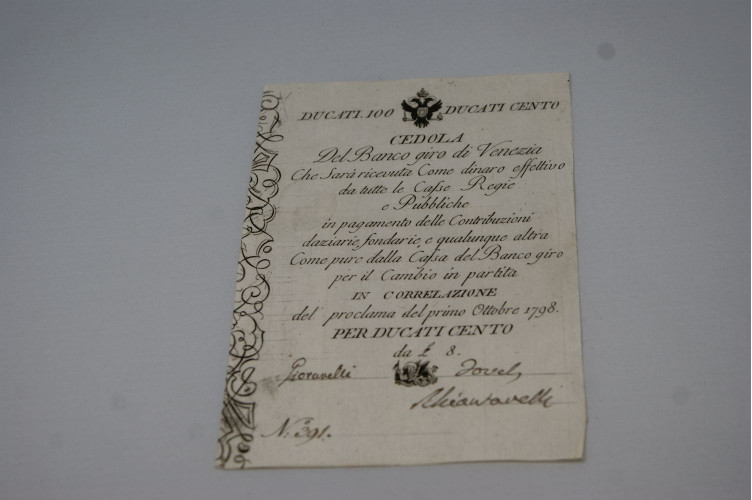 DUCATI. 100 DUCATI CENTO
CEDOLA
Del Banco giro di Venezia
Che Sarà ricevuta Come dinaro effettivo
da tutte le Casse Regie
e Pubbliche
in pagamento delle Contribuzioni
daziarie, fondarie, e qualunque altra
Come pure dalla Cassa del Banco giro
per il Cambio in partita
IN CORRELAZIONE
del proclama del primo Ottobre 1798.
PER DUCATI CENTO
da £ 8.
N.º 391.